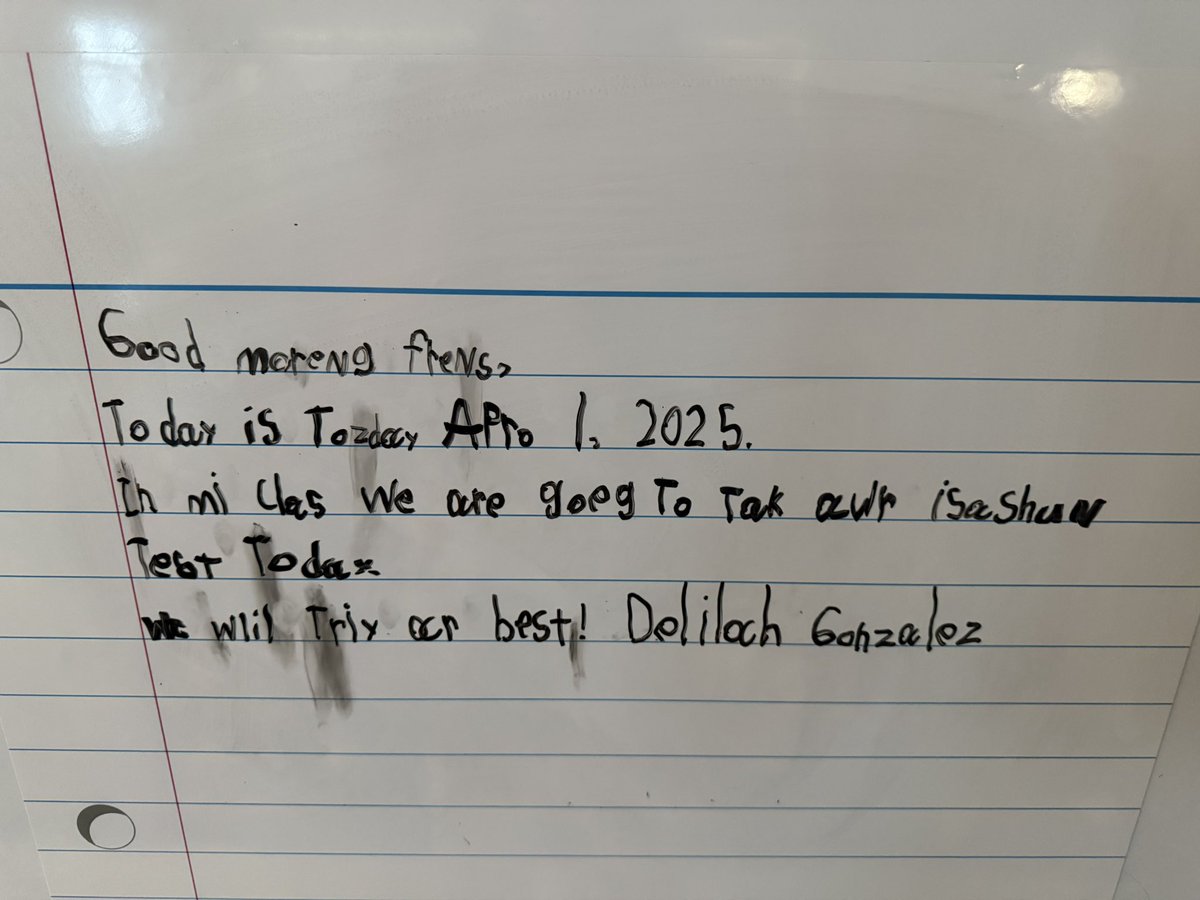 Good moreng frens,
Today is Tozday Apro 1, 2025.
In mi clas we are goeg To Tak awr isashun
Test Today.
we wlil Triy acr best! Deliloch Gonzalez